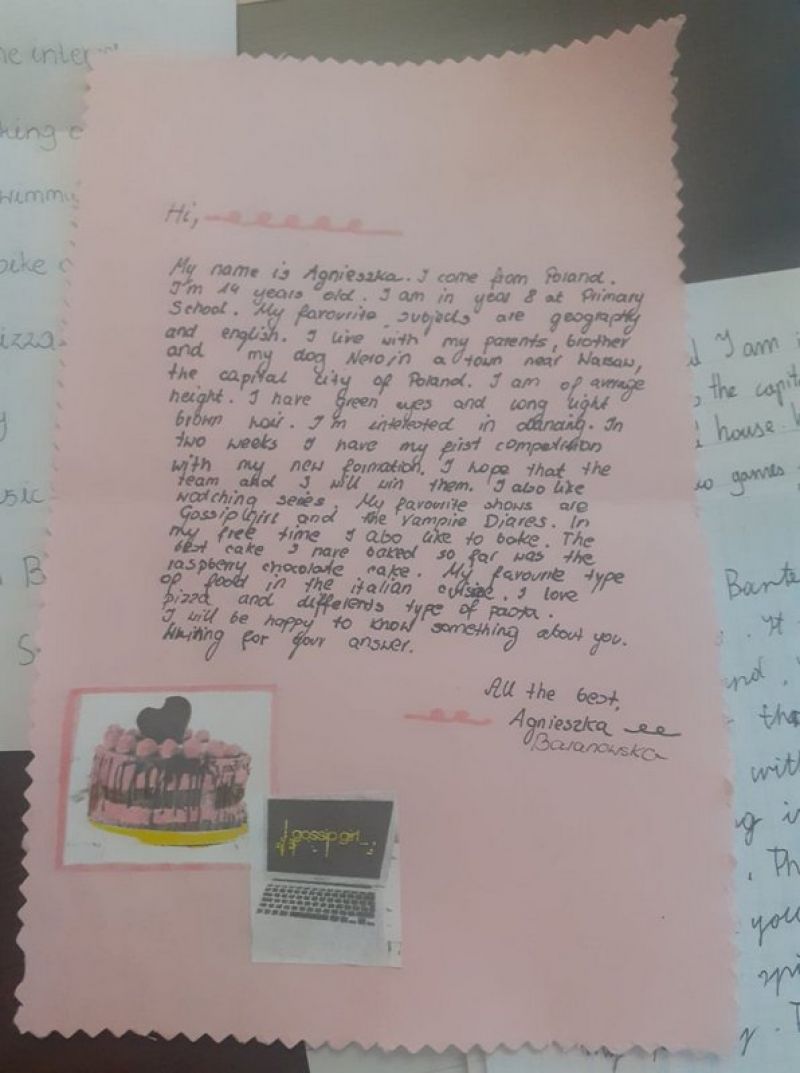 Hi,
My name is Agnieszka. I come from Poland.
I'm 14 years old. I am in year 8 at Primary
School. My favourite subjects are geography
and english. I live with my parents, brother
and my dog Nero in a town near Warsaw,
the capital city of Poland. I am of average
height. I have green eyes and long light
brown hair. I'm interested in dancing. In
two weeks I have my first competition
with my new formation. I hope that the
team and I will win them. I also like
watching series. My favourite shows are
Gossip Girl and the Vampire Diares. In
my free time I also like to bake. The
best cake I have baked so far was the
raspberry chocolate cake. My favourite type
of food in the italian cuisie. I love
pizza and differents type of pasta.
I will be happy to know something about you.
Waiting for your answer.
All the best,
Agnieszka
Baranowska
gossip girl
king
bike
izza
usic
B
S
I am i
the capita
house
games
Bante
. It
nd.
tha
with
g i
. Th
you
spi